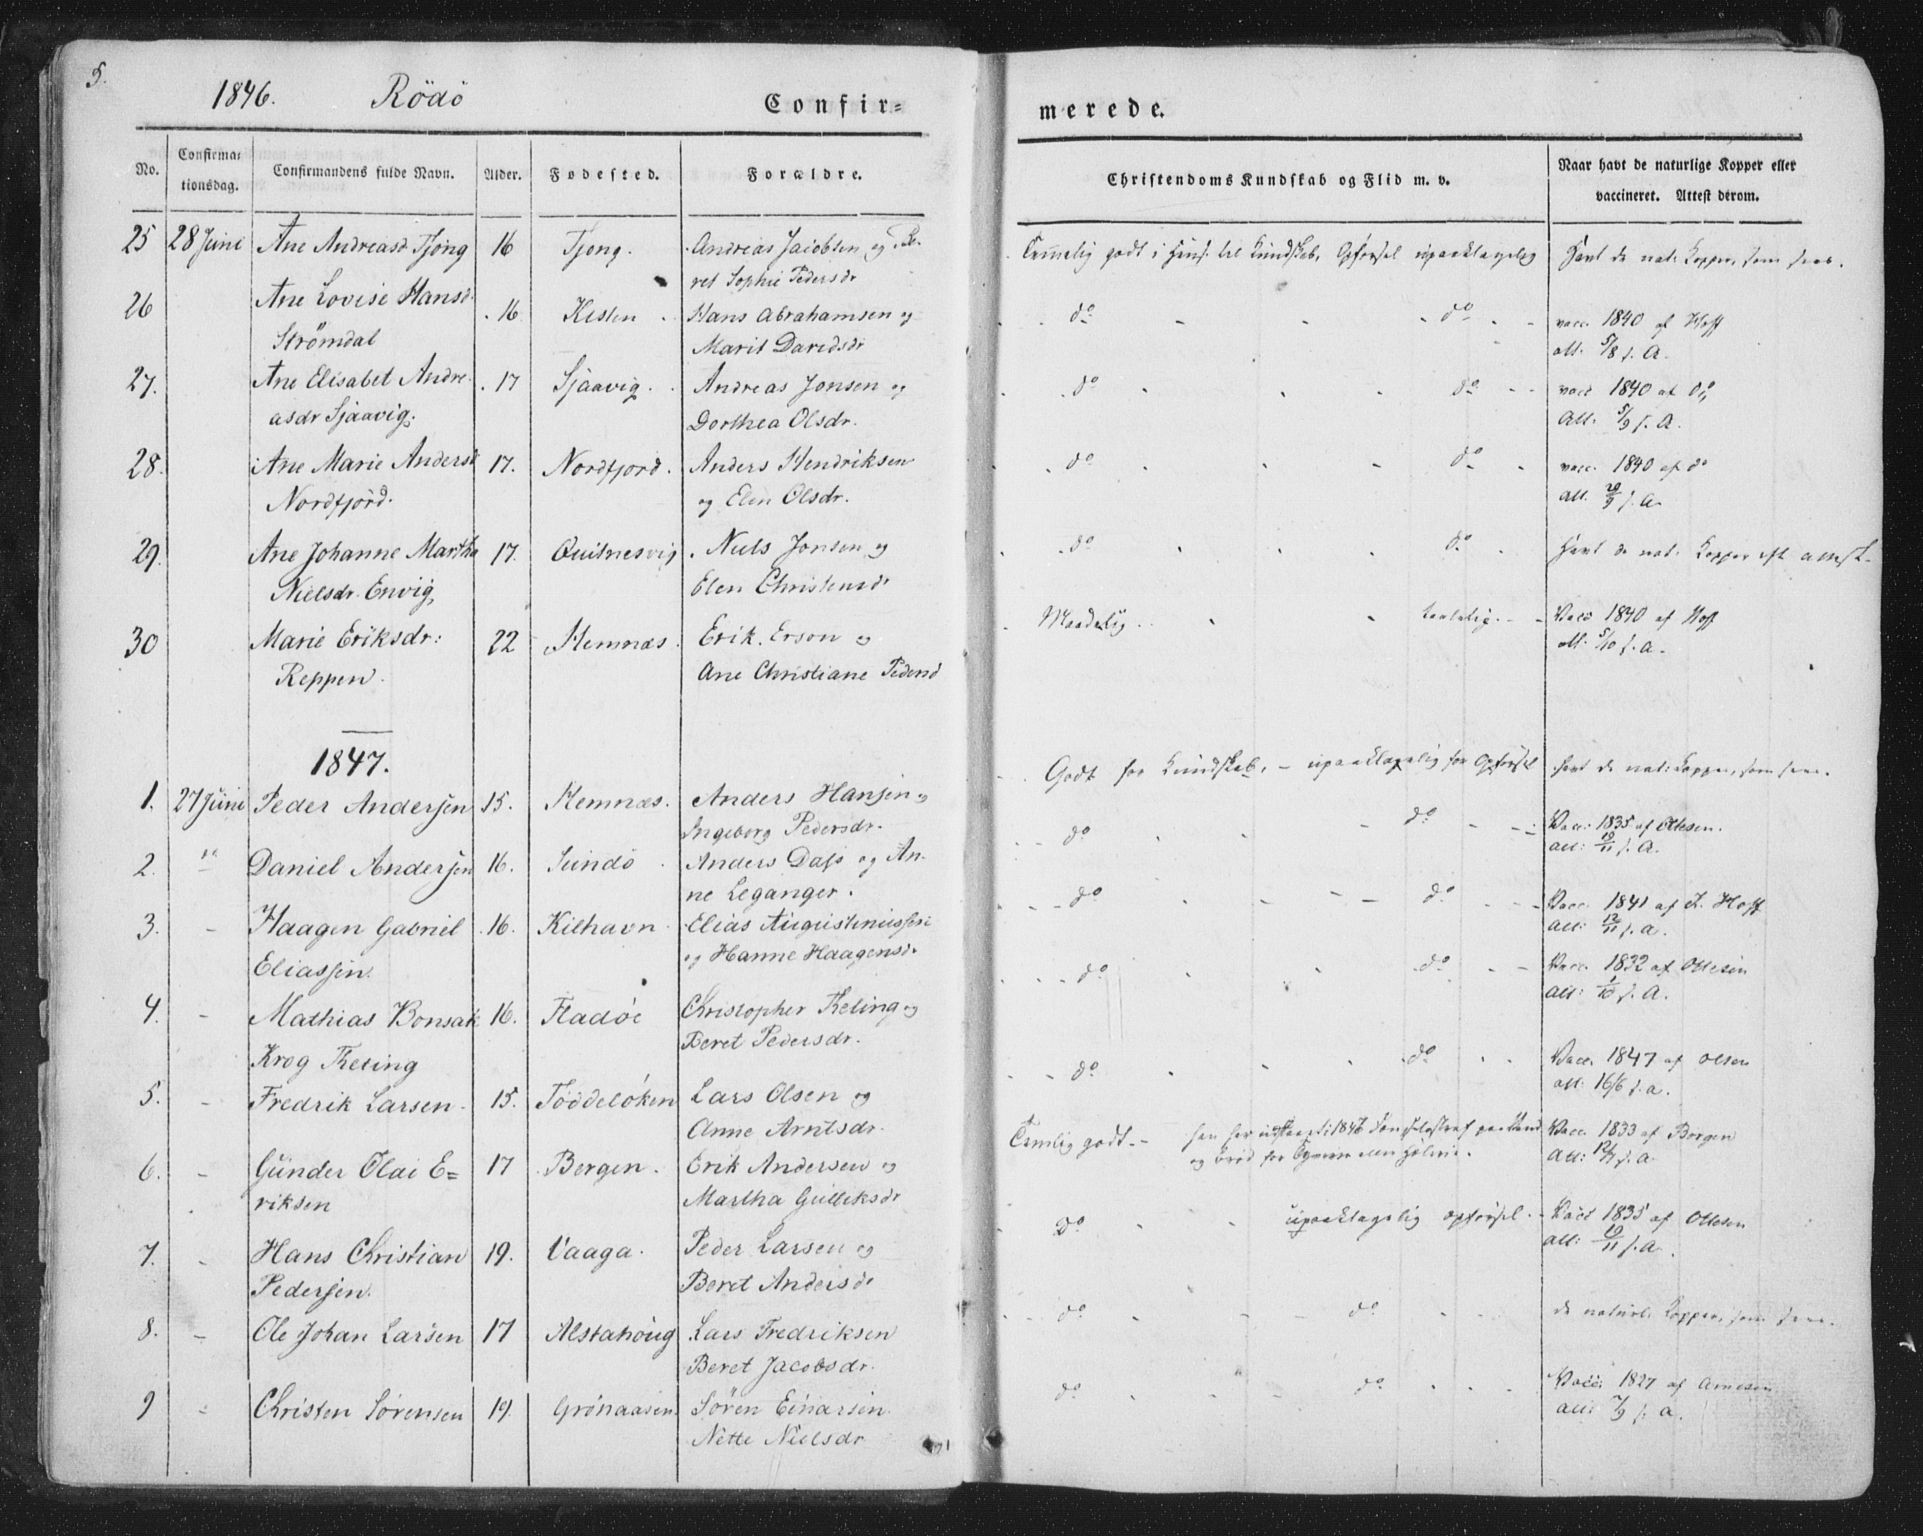 5.
1846. Rödö
Confir=
merede.
No.
Confirma=
tionsdag.
Confirmandens fulde Navn.
Alder.
Fødested.
Forældre.
Christendoms Kundskab og Flid m. v.
Naar havt de naturlige Kopper eller
vaccineret. Attest derom.
25 28 Juni Ane Andreasd Tjong 16 Tjong. Andreas Jacobsen og Be-
ret Sophie Pedersdr
Temmelig godt i Hens. til Kundskab, Opførsel upaaklagelig Havt de nat. Kopper, som sees.
26 Ane Lovise Hansd. 16 Kisten Hans Abrahamsen og
Strömdal Marit Davidsdr
do do vacc. 1840 af Hoff
att. 5/8 s. A.
27. Ane Elisabet Andre- 17 Sjaavig. Andreas Jonsen og
asdr Sjaavig. Dorthea Olsdr.
do do vacc 1840 af do
Att. 5/9 s. A.
28. Ane Marie Andersd 17. Nordfjord. Anders Hendriksen
Nordfjord. og Elen Olsdr.
do do vacc. 1840 af do
att. 20/9 s. A.
29. Ane Johanne Martha 17. Quitnesvig Niels Jonsen og
Nielsdr. Envig Elen Christensdr
do do Havt de nat. Kopper eft attest.
30 Marie Eriksdr: 22 Hemnæs. Erik Erson og
Reppen. Ane Christiane Pedersd
Maadelig taalelig Vacc 1840 af Hoff
att. 5/10 s. a.
1847.
1. 27 Juni Peder Andersen 15. Hemnæs. Anders Hansen og
Ingeborg Pedersdr.
Godt for Kundskab, - upaaklagelig for Opførsel havt de nat: Kopper, som sees.
2. " Daniel Andersen 16. Sundö Anders Dass og An-
ne Leganger.
do do Vacc: 1835 af Ottesen.
att: 19/11 s. A.
3. - Haagen Gabriel 16. Kilhavn Elias Augustinussen
Eliassen. og Hanne Haagensdr
do do Vacc. 1841 af J. Hoff
att: 12/11 s. a.
4. - Mathias Bonsak 16. Fladöe Christopher Theting og
Krog Theting Beret Pedersdr.
do do Vacc. 1832 af Ottesen
att: 1/10 s. A.
5. - Fredrik Larsen 15. Töddelöken Lars Olsen og
Anne Arntsdr.
do do Vacc. 1847 af Olsen
att: 16/6 s. a.
6. - Günder Olai E= 17 Bergen. Erik Andersen og
riksen Martha Gulleksdr
Temlig godt - han har
Vacc. 1833 af Borgen
att: s. a.
7. - Hans Christian 19. Vaaga. Peder Larsen og
Pedersen. Beret Andersdr
Do upaaklagelig opførsel. Vacc 1835 af Ottesen
att: 19/11 s. A.
8. - Ole Johan Larsen 17 Alstahoug Lars Fredriksen
Beret Jacobsdr.
do do de naturl. Kopper, som sees.
9 - Christen Sørensen 19. Grönaasen Sören Einarsen
Nette Nielsdr
do do Vacc. 1827 af Arnesen
att: 7/9 s. a.